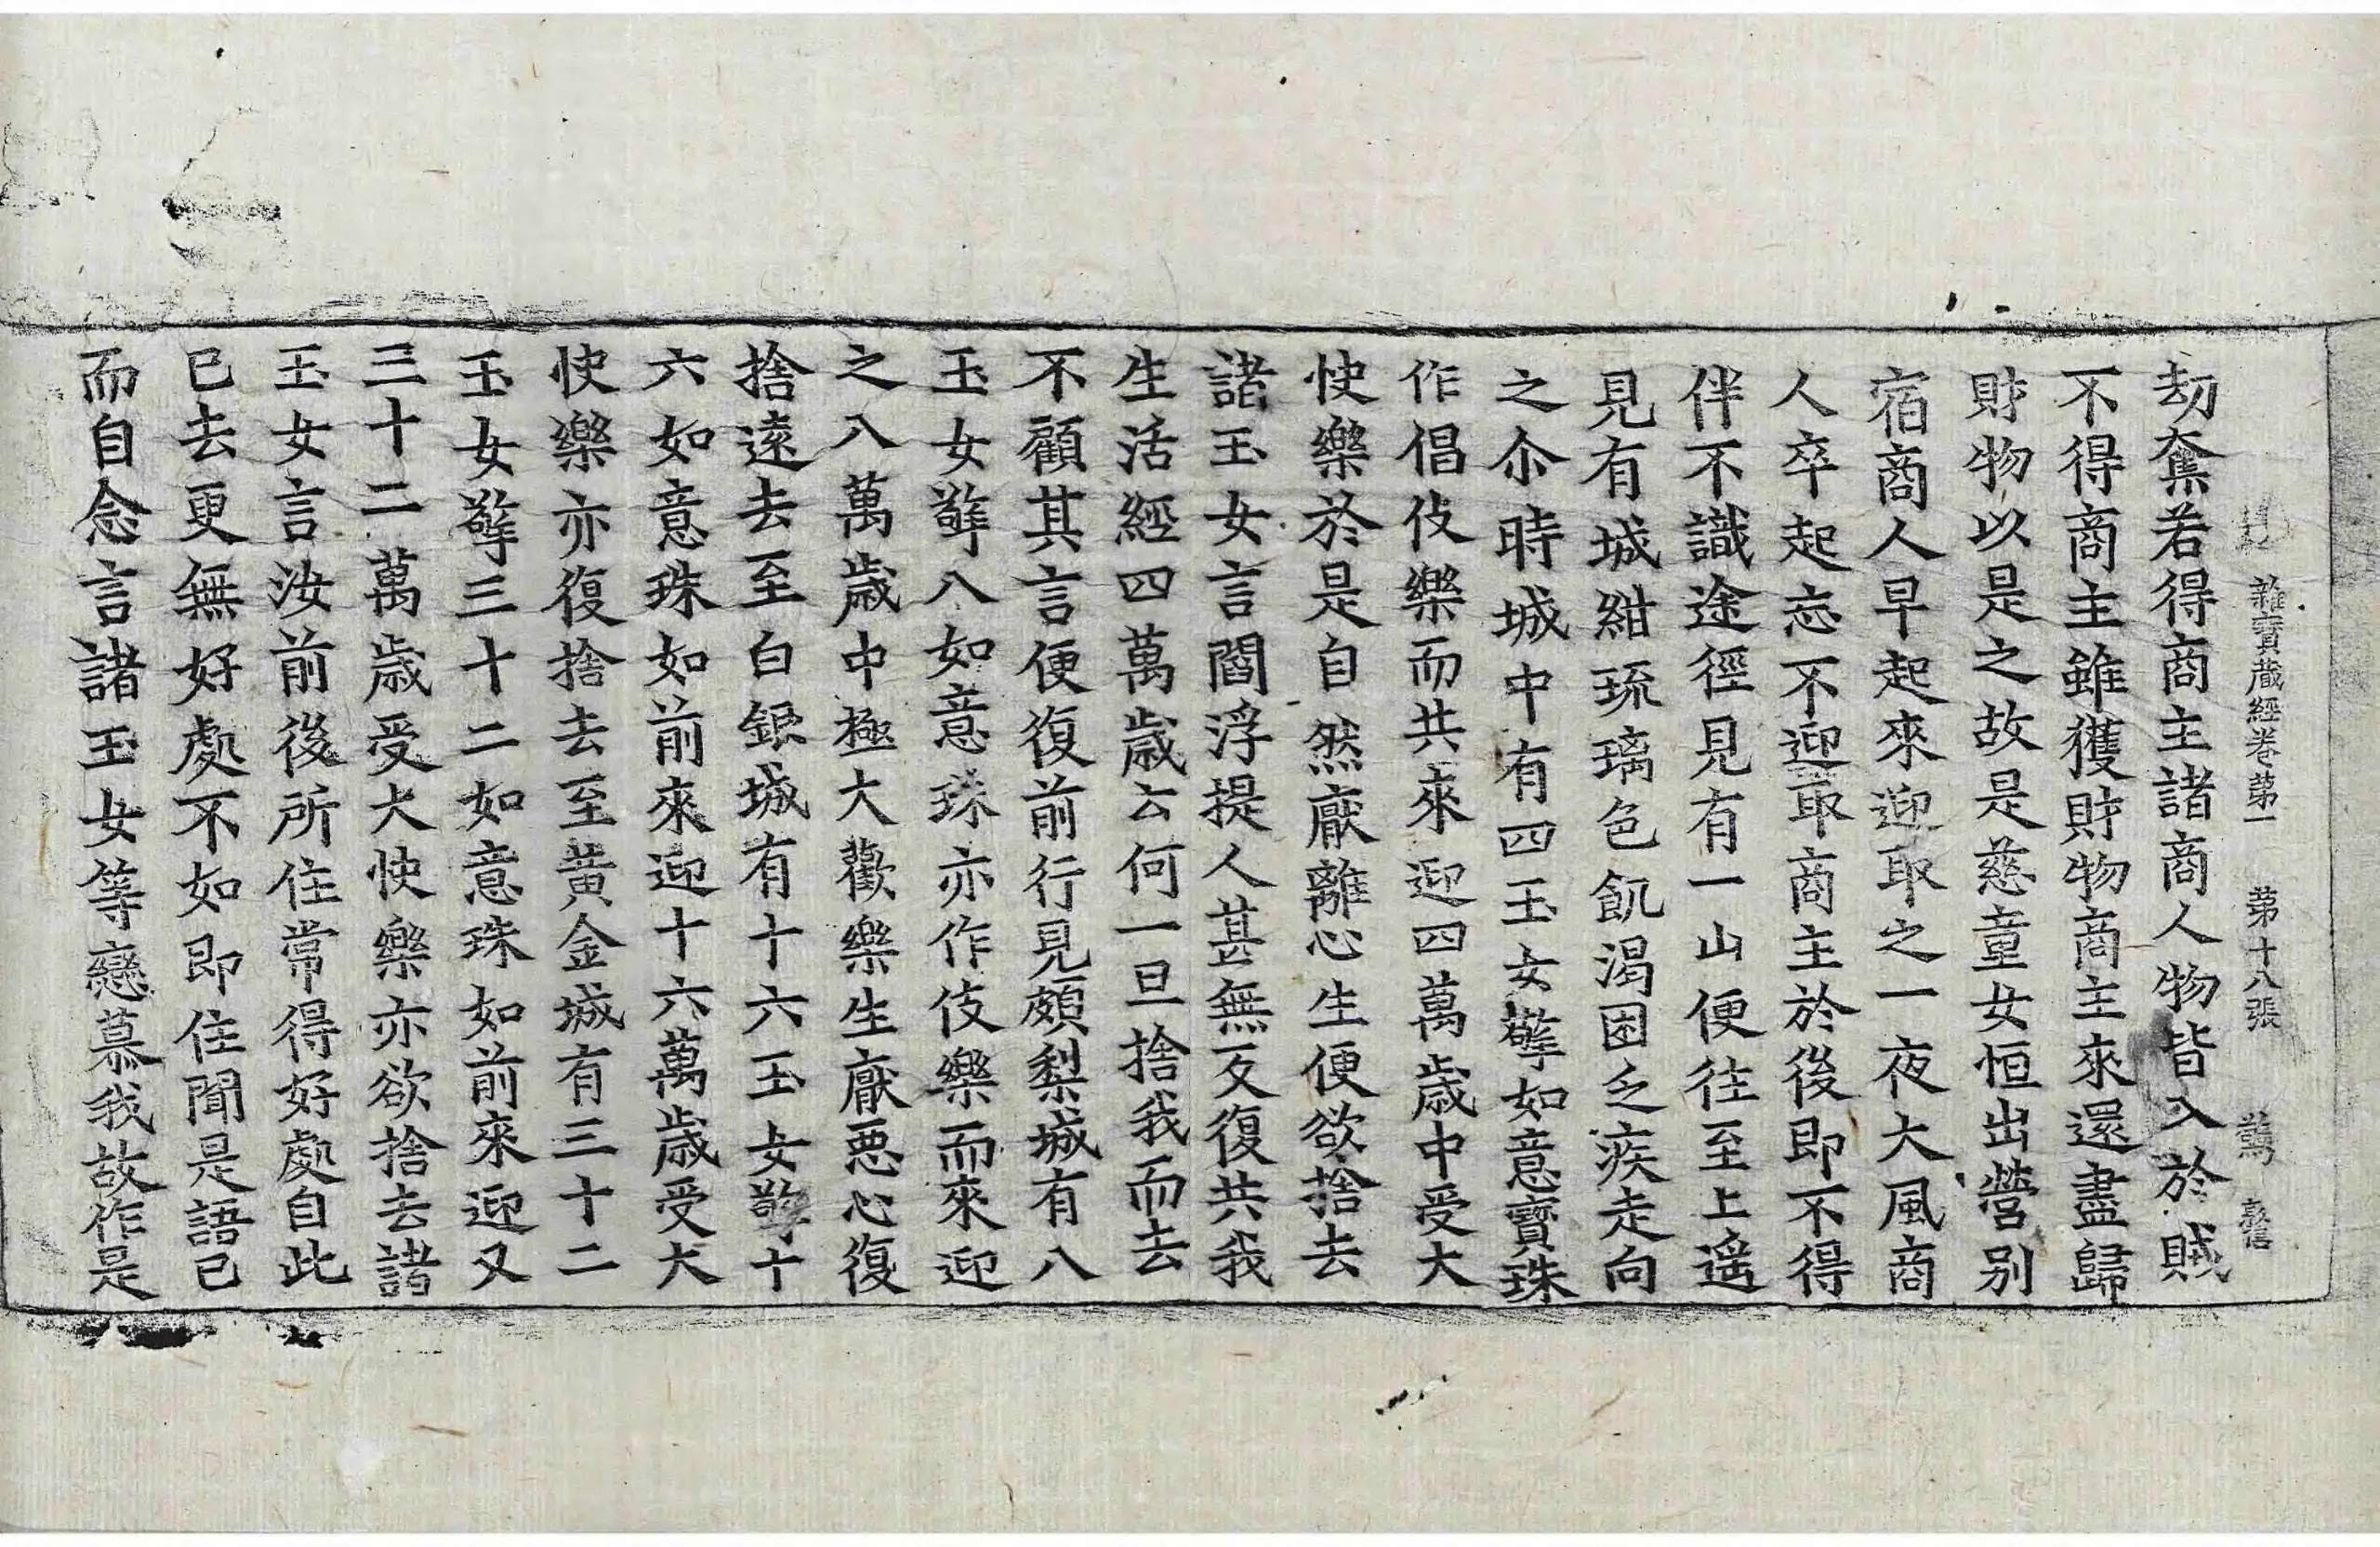 雜寶藏經卷第一 第十八張 鶩
劫奪若得商主諸商人物皆入於賊
不得商主雖獲財物商主來還盡歸
財物以是之故是慈童女恒出營別
宿商人早起來迎取之一夜大風商
人卒起忘不迎取商主於後即不得
伴不識途徑見有一山便往至上遙
見有城紺琉璃色飢渴困乏疾走向
之尒時城中有四玉女擎如意寶珠
作倡伎樂而共來迎四萬歲中受大
快樂於是自然厭離心生便欲捨去
諸玉女言閻浮提人甚無反復共我
生活經四萬歲云何一旦捨我而去
不顧其言便復前行見頗梨城有八
玉女擎八如意珠亦作伎樂而來迎
之八萬歲中極大歡樂生厭惡心復
捨遠去至白銀城有十六玉女擎十
六如意珠如前來迎十六萬歲受大
快樂亦復捨去至黃金城有三十二
玉女擎三十二如意珠如前來迎又
三十二萬歲受大快樂亦欲捨去諸
玉女言汝前後所住常得好處自此
已去更無好處不如即住聞是語已
而自念言諸玉女等戀慕我故作是